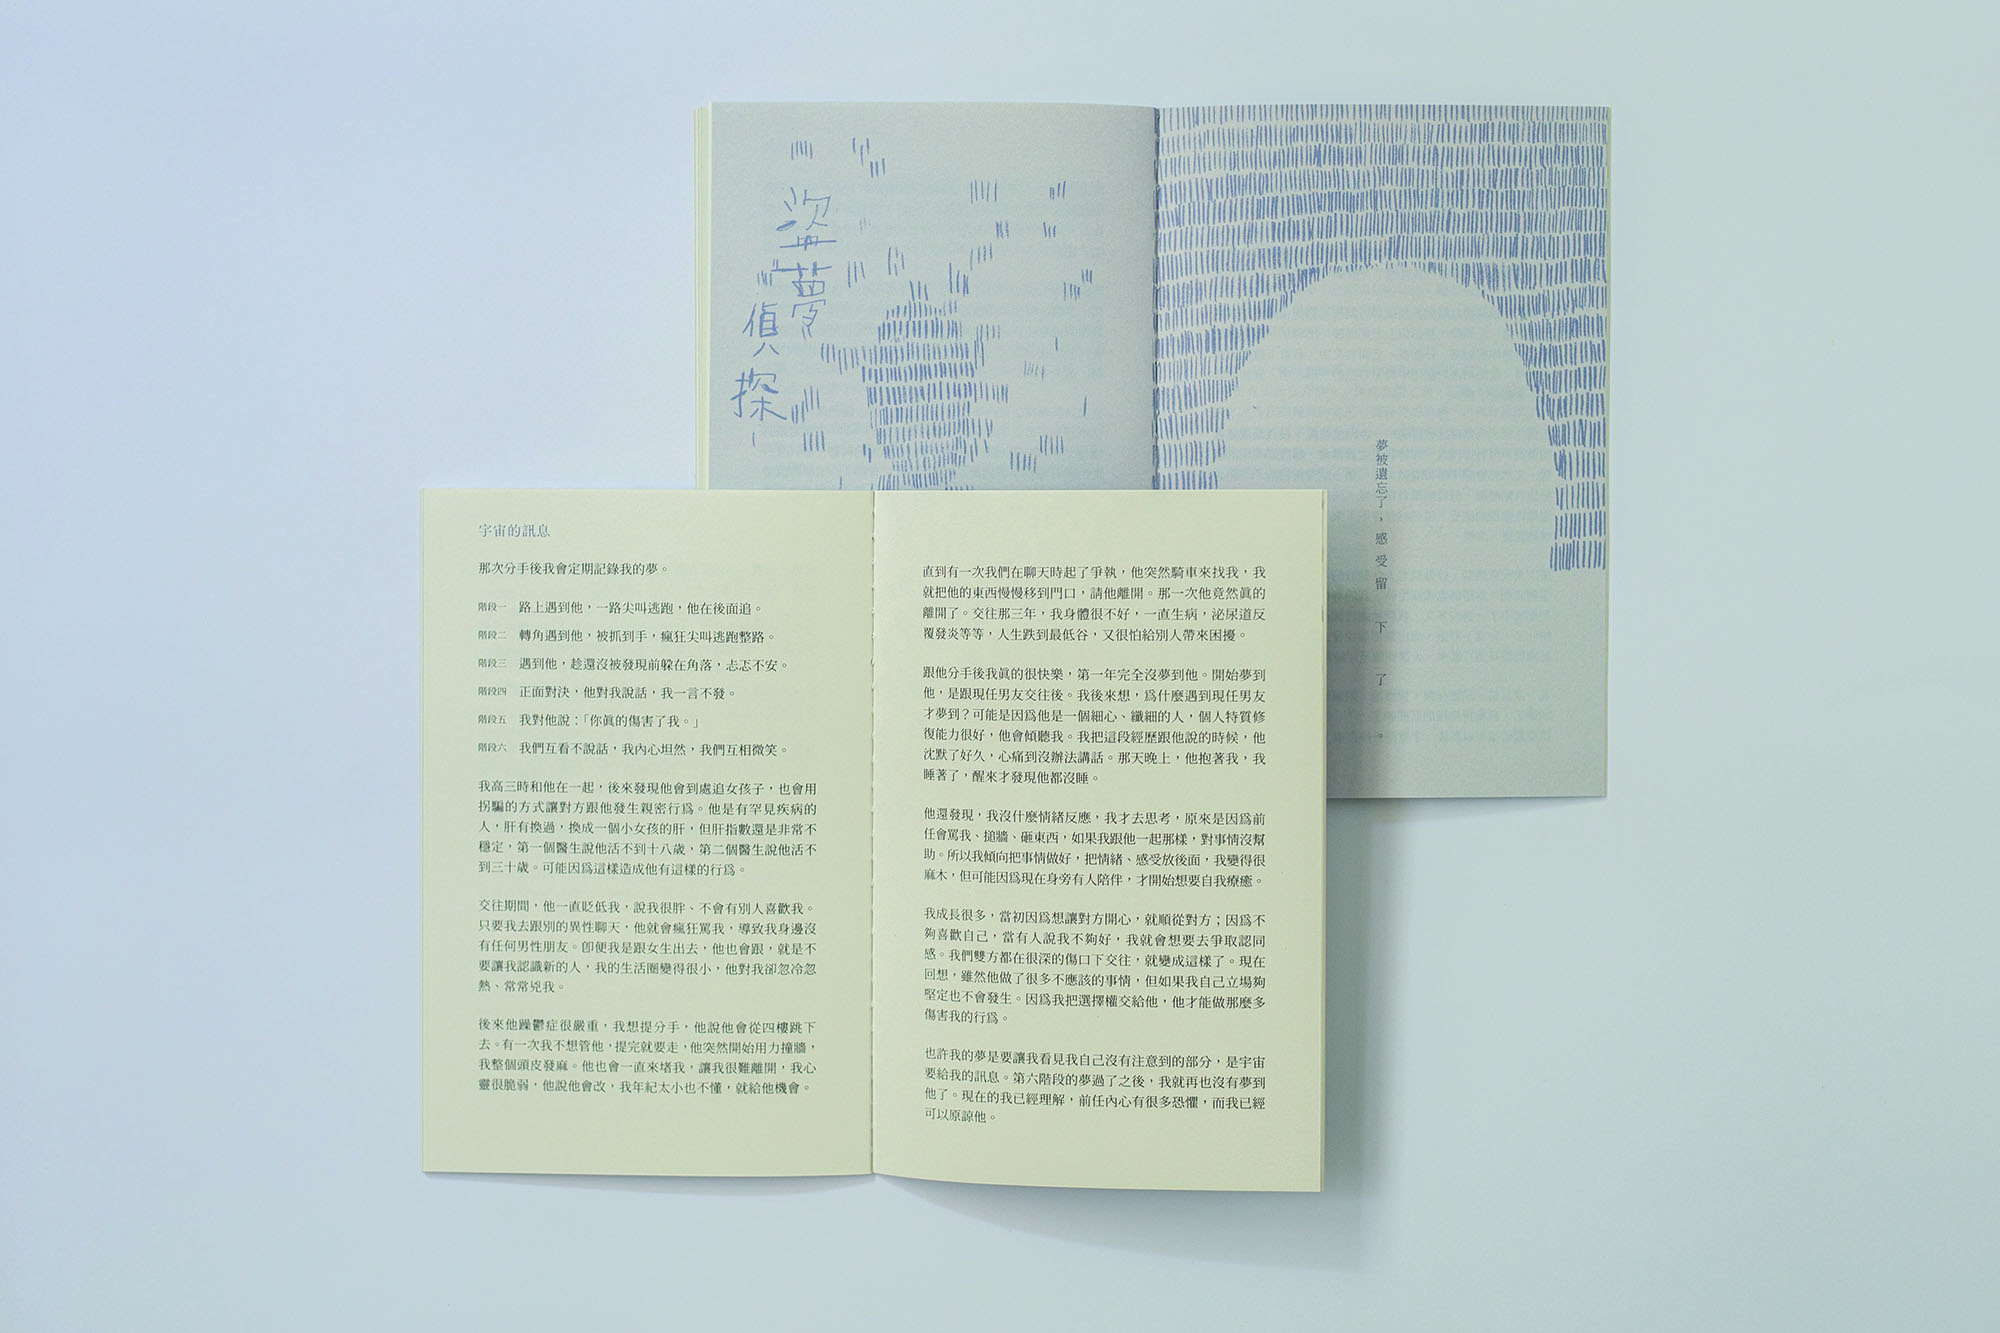 盜夢
偵探
夢被遺忘了，感受留下了。
宇宙的訊息
那次分手後我會定期記錄我的夢。
階段一 路上遇到他，一路尖叫逃跑，他在後面追。
階段二 轉角遇到他，被抓到手，瘋狂尖叫逃跑整路。
階段三 遇到他，趁還沒被發現前躲在角落，忐忑不安。
階段四 正面對決，他對我說話，我一言不發。
階段五 我對他說：「你真的傷害了我。」
階段六 我們互看不說話，我內心坦然，我們互相微笑。
我高三時和他在一起，後來發現他會到處追女孩子，也會用
拐騙的方式讓對方跟他發生親密行為。他是有罕見疾病的
人，肝有換過，換成一個小女孩的肝，但肝指數還是非常不
穩定，第一個醫生說他活不到十八歲，第二個醫生說他活不
到三十歲。可能因為這樣造成他有這樣的行為。
交往期間，他一直貶低我，說我很胖、不會有別人喜歡我。
只要我去跟別的異性聊天，他就會瘋狂罵我，導致我身邊沒
有任何男性朋友。即便我是跟女生出去，他也會跟，就是不
要讓我認識新的人，我的生活圈變得很小，他對我卻忽冷忽
熱、常常兇我。
後來他躁鬱症很嚴重，我想提分手，他說他會從四樓跳下
去。有一次我不想管他，提完就要走，他突然開始用力撞牆，
我整個頭皮發麻。他也會一直來堵我，讓我很難離開，我心
靈很脆弱，他說他會改，我年紀太小也不懂，就給他機會。
直到有一次我們在聊天時起了爭執，他突然騎車來找我，我
就把他的東西慢慢移到門口，請他離開。那一次他竟然真的
離開了。交往那三年，我身體很不好，一直生病，泌尿道反
覆發炎等等，人生跌到最低谷，又很怕給別人帶來困擾。
跟他分手後我真的很快樂，第一年完全沒夢到他。開始夢到
他，是跟現任男友交往後。我後來想，為什麼遇到現任男友
才夢到？可能是因為他是一個細心、纖細的人，個人特質修
復能力很好，他會傾聽我。我把這段經歷跟他說的時候，他
沈默了好久，心痛到沒辦法講話。那天晚上，他抱著我，我
睡著了，醒來才發現他都沒睡。
他還發現，我沒什麼情緒反應，我才去思考，原來是因為前
任會罵我、搥牆、砸東西，如果我跟他一起那樣，對事情沒幫
助。所以我傾向把事情做好，把情緒、感受放後面，我變得很
麻木，但可能因為現在身旁有人陪伴，才開始想要自我療癒。
我成長很多，當初因為想讓對方開心，就順從對方；因為不
夠喜歡自己，當有人說我不夠好，我就會想要去爭取認同
感。我們雙方都在很深的傷口下交往，就變成這樣了。現在
回想，雖然他做了很多不應該的事情，但如果我自己立場夠
堅定也不會發生。因為我把選擇權交給他，他才能做那麼多
傷害我的行為。
也許我的夢是要讓我看見我自己沒有注意到的部分，是宇宙
要給我的訊息。第六階段的夢過了之後，我就再也沒有夢到
他了。現在的我已經理解，前任內心有很多恐懼，而我已經
可以原諒他。